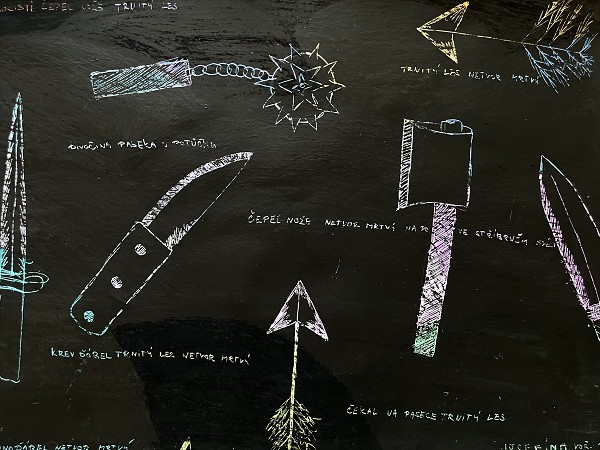 ČEPEL NOŽE TRNITÝ LES
TRNITÝ LES NETVOR MRTVÝ
PASEKA U POTŮČKU
ČEPEL NOŽE NETVOR MRTVÝ STŘÍBRNÉM
KREV ĎÁBEL TRNITÝ LES NETVOR MRTVÝ
ČEKAL NA PASECE TRNITÝ LES
NETVOR MRTVÝ
JOSEFÍNA